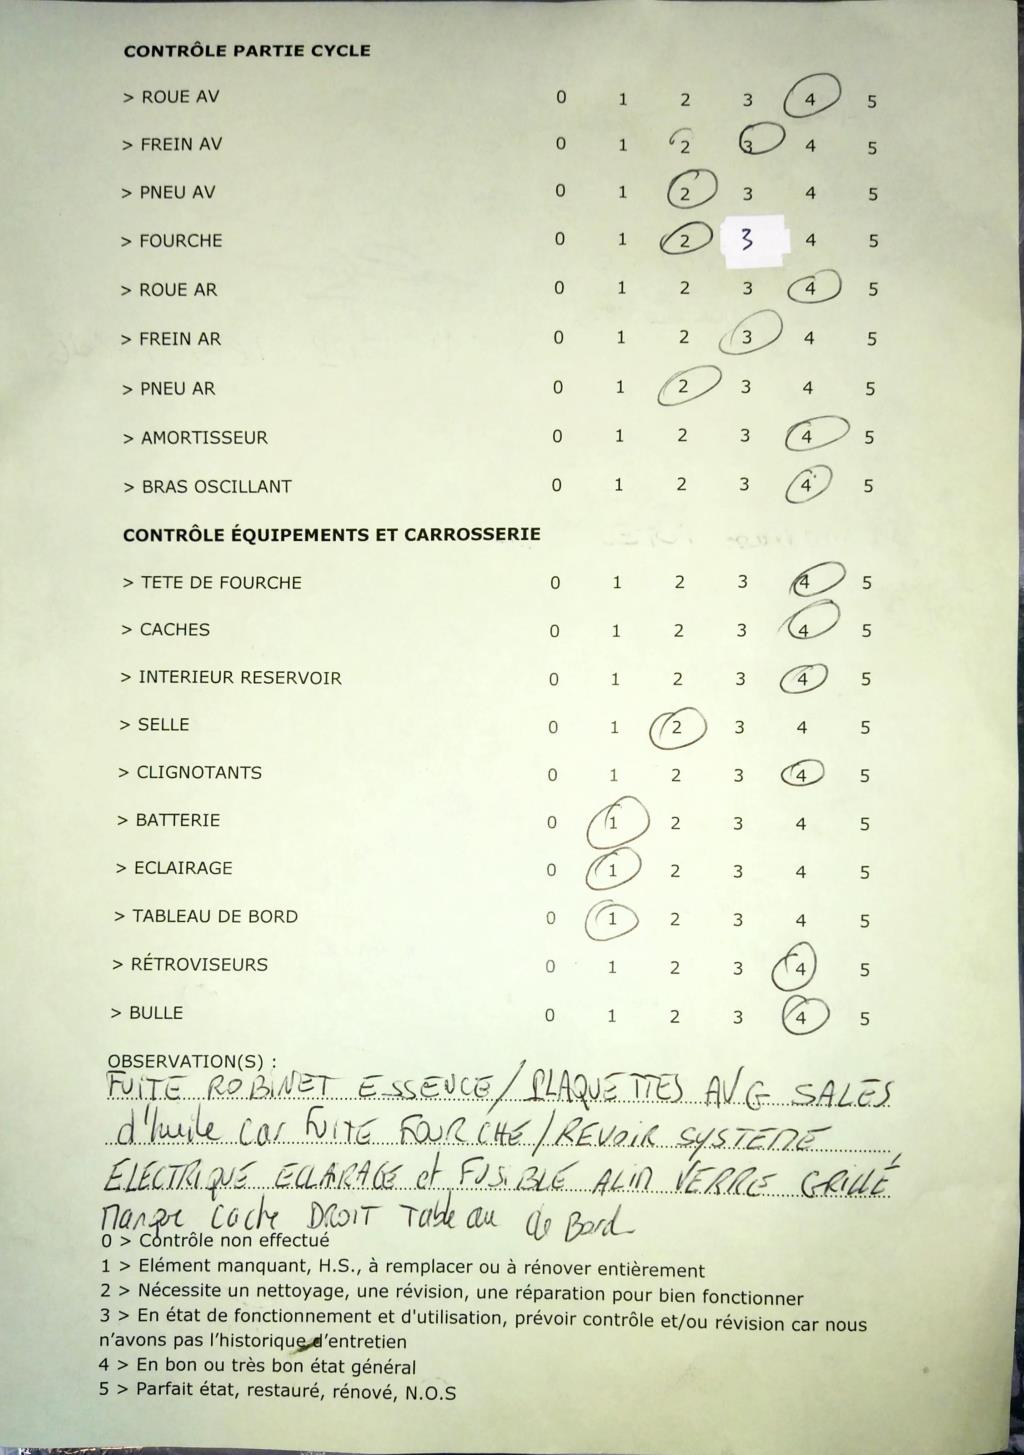 CONTRÔLE PARTIE CYCLE
> ROUE AV 0 1 2 3 4 5
> FREIN AV 0 1 2 3 4 5
> PNEU AV 0 1 2 3 4 5
> FOURCHE 0 1 2 3 4 5
> ROUE AR 0 1 2 3 4 5
> FREIN AR 0 1 2 3 4 5
> PNEU AR 0 1 2 3 4 5
> AMORTISSEUR 0 1 2 3 4 5
> BRAS OSCILLANT 0 1 2 3 4 5
CONTRÔLE ÉQUIPEMENTS ET CARROSSERIE
> TETE DE FOURCHE 0 1 2 3 4 5
> CACHES 0 1 2 3 4 5
> INTERIEUR RESERVOIR 0 1 2 3 4 5
> SELLE 0 1 2 3 4 5
> CLIGNOTANTS 0 1 2 3 4 5
> BATTERIE 0 1 2 3 4 5
> ECLAIRAGE 0 1 2 3 4 5
> TABLEAU DE BORD 0 1 2 3 4 5
> RÉTROVISEURS 0 1 2 3 4 5
> BULLE 0 1 2 3 4 5
OBSERVATION(S) :
FUITE ROBINET ESSENCE / PLAQUETTES AVG SALES
d'huile car FUITE FOURCHE / REVOIR SYSTEME
ELECTRIQUE ECLARAGE et FUSIBLE ALIM VERRE GRILLÉ
Manque Cache DROIT Tableau de Bord
0 > Contrôle non effectué
1 > Elément manquant, H.S., à remplacer ou à rénover entièrement
2 > Nécessite un nettoyage, une révision, une réparation pour bien fonctionner
3 > En état de fonctionnement et d'utilisation, prévoir contrôle et/ou révision car nous
n'avons pas l'historique d'entretien
4 > En bon ou très bon état général
5 > Parfait état, restauré, rénové, N.O.S